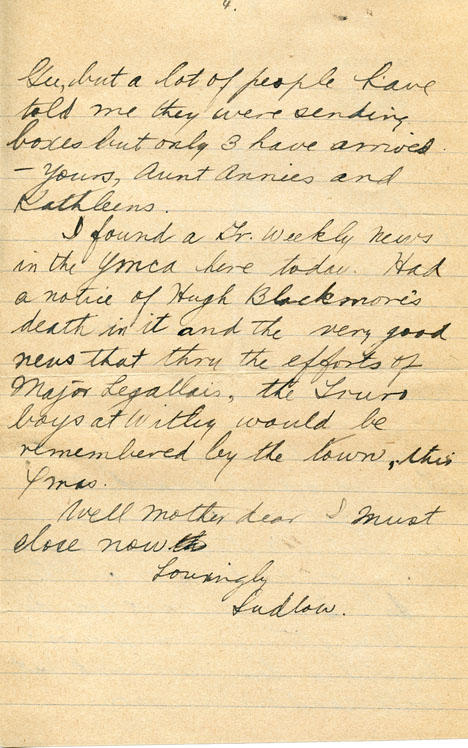 4.
Gee, but a lot of people have
told me they were sending
boxes but only 3 have arrived
- Yours, Aunt Annies and
Kathleens.
I found a Tr. Weekly News
in the Ymca here today. Had
a notice of Hugh Blackmore's
death in it and the very good
news that thru the efforts of
Major Legallais, the Truro
boys at Witley would be
remembered by the town, this
Xmas.
Well mother dear I must
close now
Lovingly
Ludlow.